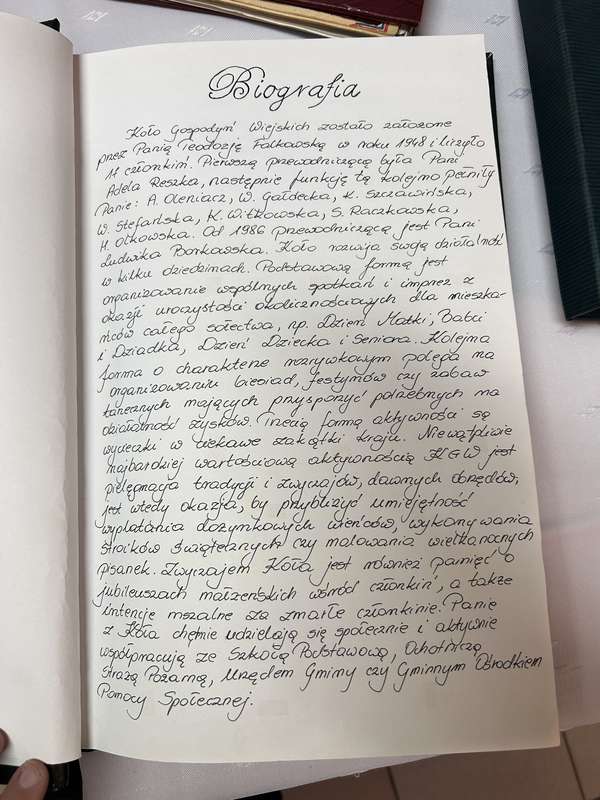 Biografia
Koło Gospodyń Wiejskich zostało założone
przez Panią Teodozję Falkowską w roku 1948 i liczyło
17 członkiń. Pierwszą przewodniczącą była Pani
Adela Reszka, następnie funkcję tą kolejno pełniły
Panie: A. Oleniacz, W. Gałdecka, K. Szczawińska,
W. Stefańska, K. Witkowska, S. Raczkowska,
H. Olkowska. Od 1986 przewodniczącą jest Pani
Ludwika Borkowska. Koło rozwija swoją działalność
w kilku dziedzinach. Podstawową formą jest
organizowanie wspólnych spotkań i imprez z
okazji uroczystości okolicznościowych dla mieszkań-
ców całego sołectwa, np. Dzień Matki, Babci
i Dziadka, Dzień Dziecka i Seniora. Kolejna
forma o charakterze rozrywkowym polega na
organizowaniu biesiad, festynów czy zabaw
tanecznych mających przysporzyć potrzebnych na
działalność zysków. Trzecią formą aktywności są
wycieczki w ciekawe zakątki kraju. Niewątpliwie
najbardziej wartościową aktywnością KGW jest
pielęgnacja tradycji i zwyczajów, dawnych obrzędów,
jest wtedy okazja, by przybliżyć umiejętność
wyplatania dożynkowych wieńców, wykonywania
stroików świątecznych czy malowania wielkanocnych
pisanek. Zwyczajem Koła jest również pamięć o
jubileuszach małżeńskich wśród członkiń, a także
intencje mszalne za zmarłe członkinie. Panie
z Koła chętnie udzielają się społecznie i aktywnie
współpracują ze Szkołą Podstawową, Ochotniczą
Strażą Pożarną, Urzędem Gminy czy Gminnym Ośrodkiem
Pomocy Społecznej.